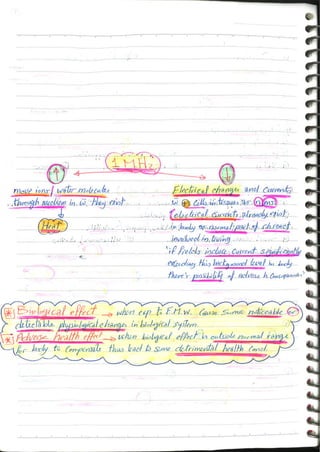 1 MHz
move ions / water molecules
through medium in w. they exist
Heat
Electrical charges and currents
in cells in tissues
electrical currents already exist
in body as normal part of
involved in living
if fields induce current significantly
exceeding this background level in body
there's possibility of adverse h. Consequences
* Biological effect → when exp. to E.M.W. Cause some noticeable or
detectable physiological changes in biological system.
* Adverse health effect → when biological effect is outside normal range
for body to Compensate thus lead to some detrimental health Cond.